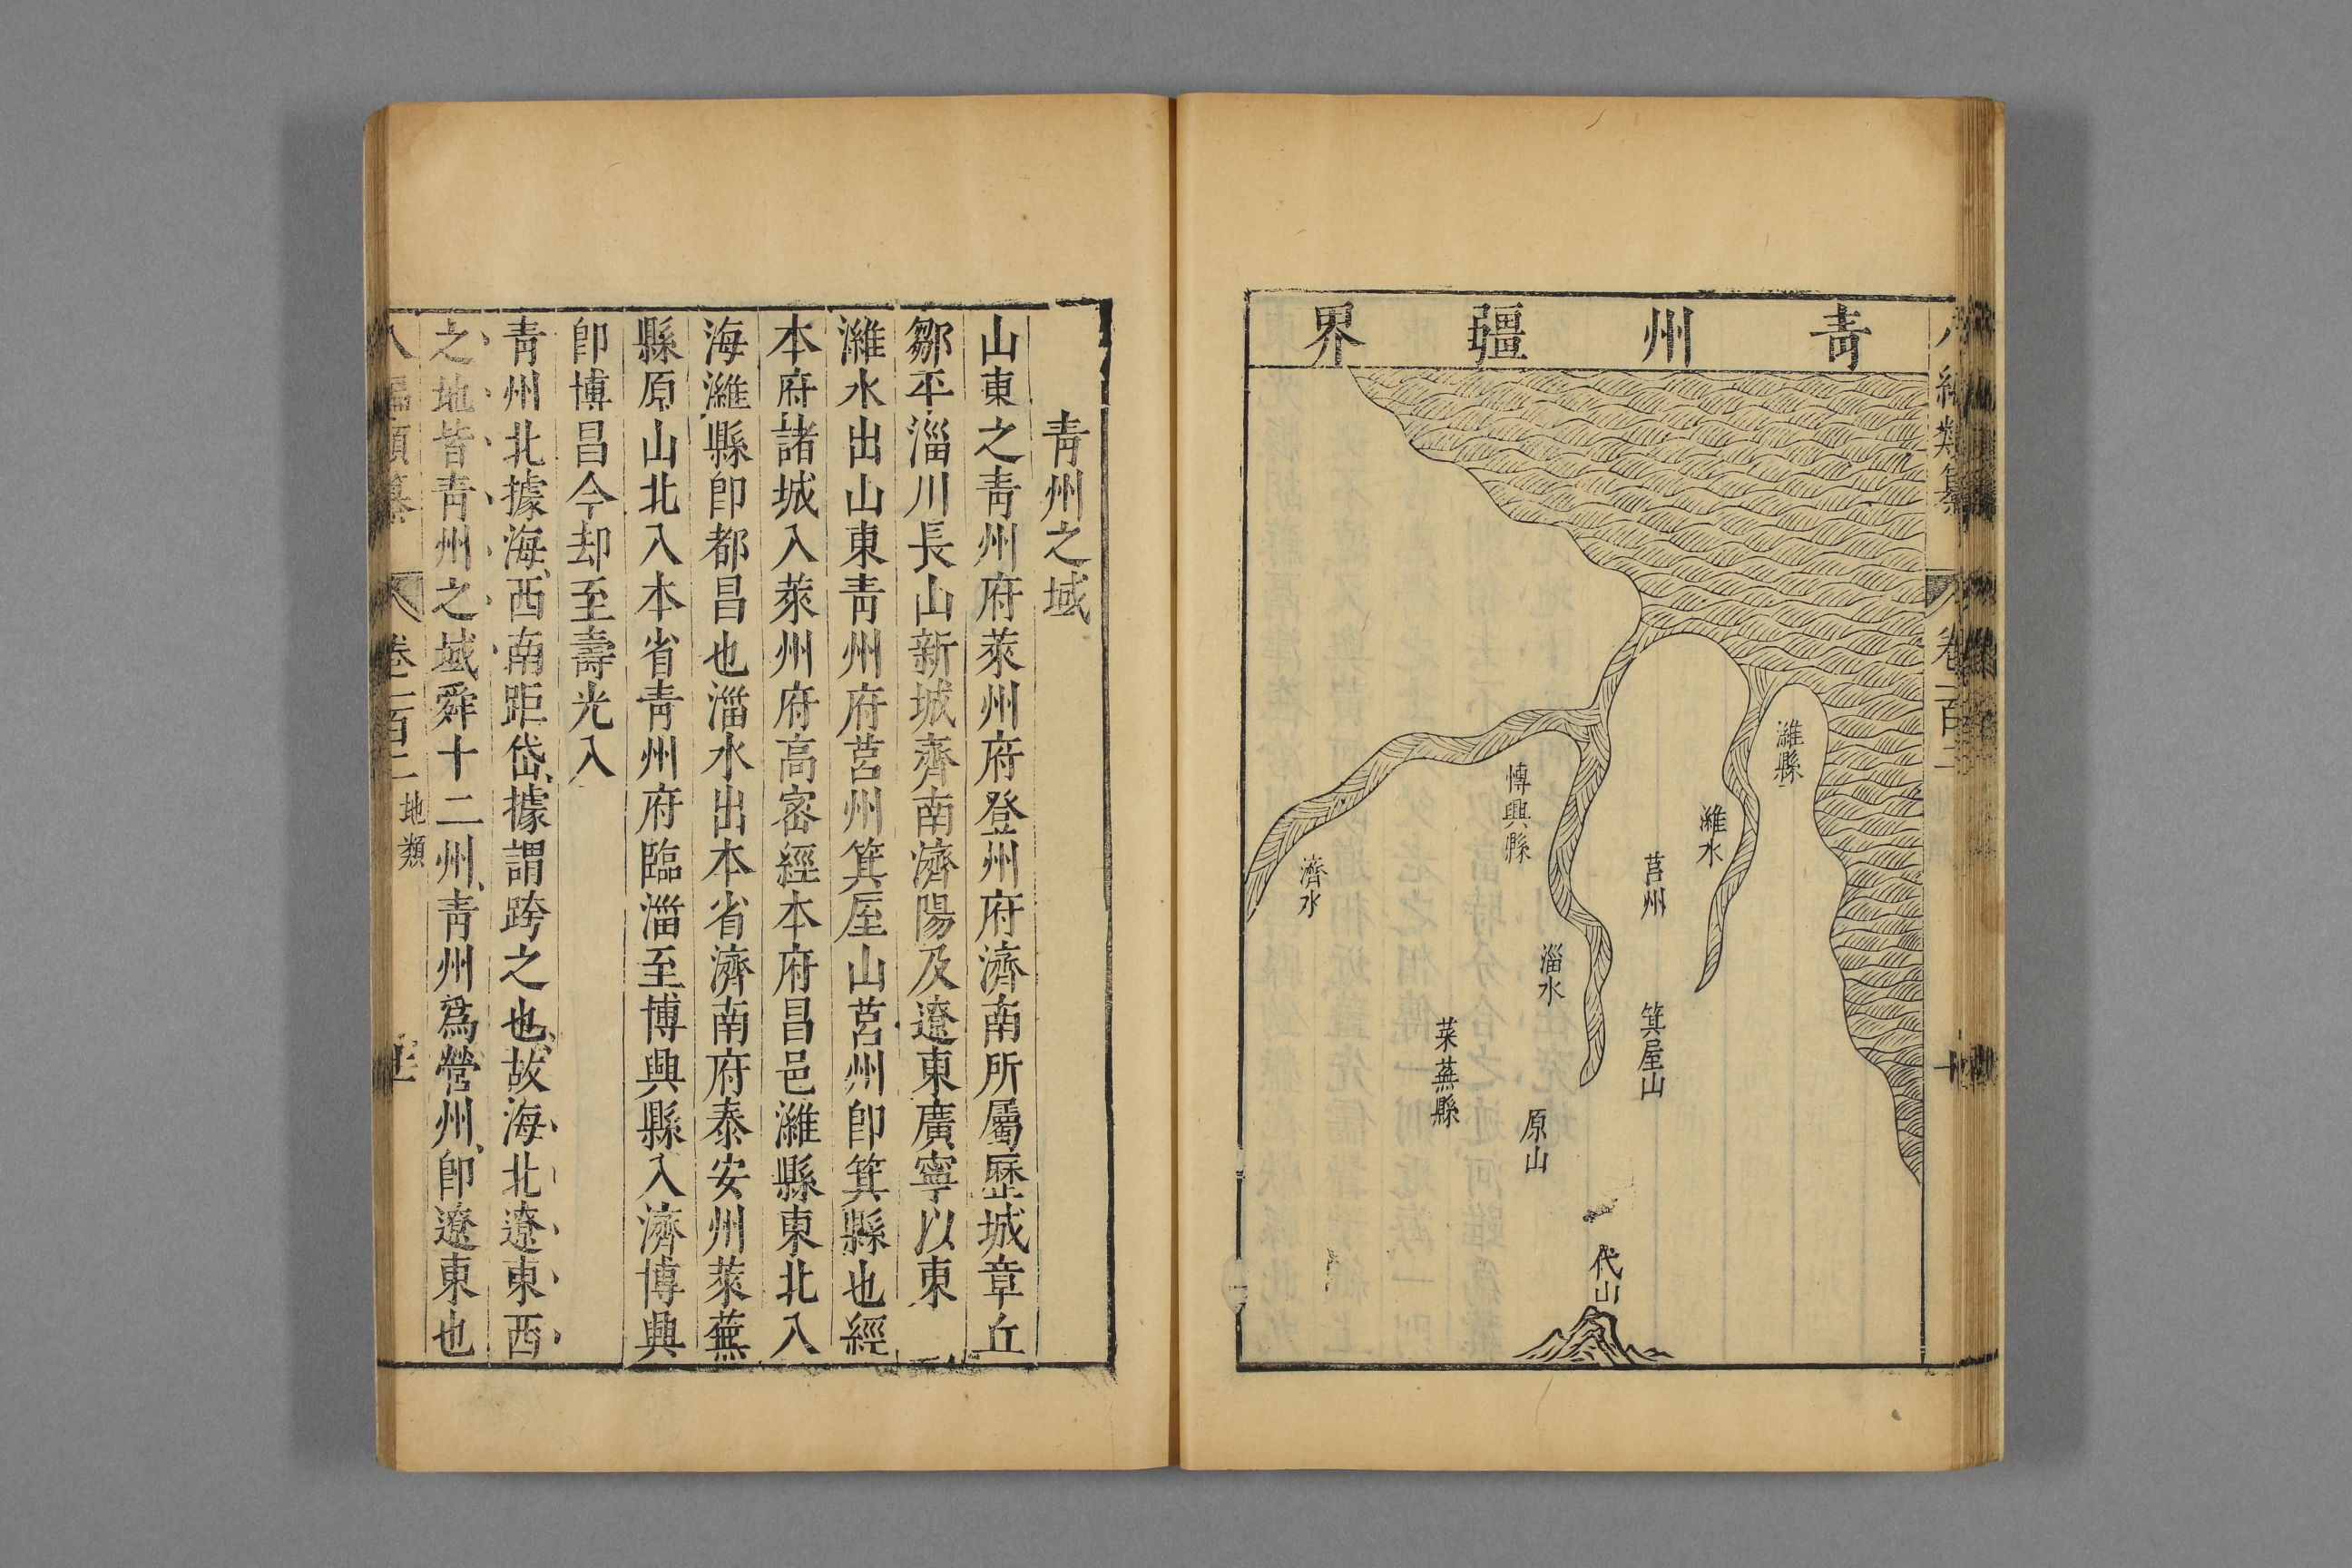 青州疆界
濰縣
濰水
莒州
箕屋山
博興縣
淄水
原山
萊蕪縣
濟水
代山
青州之域
山東之青州府萊州府登州府濟南所屬歷城章丘
鄒平淄川長山新城齊南濟陽及遼東廣寧以東
濰水出山東青州府莒州箕屋山莒州卽箕縣也經
本府諸城入萊州府高密經本府昌邑濰縣東北入
海濰縣卽都昌也淄水出本省濟南府泰安州萊蕪
縣原山北入本省青州府臨淄至博興縣入濟博興
卽博昌今却至壽光入
青州北據海西南距岱據謂跨之也故海北遼東西
之地皆青州之域舜十二州青州爲營州卽遼東也
卷一百二 地類